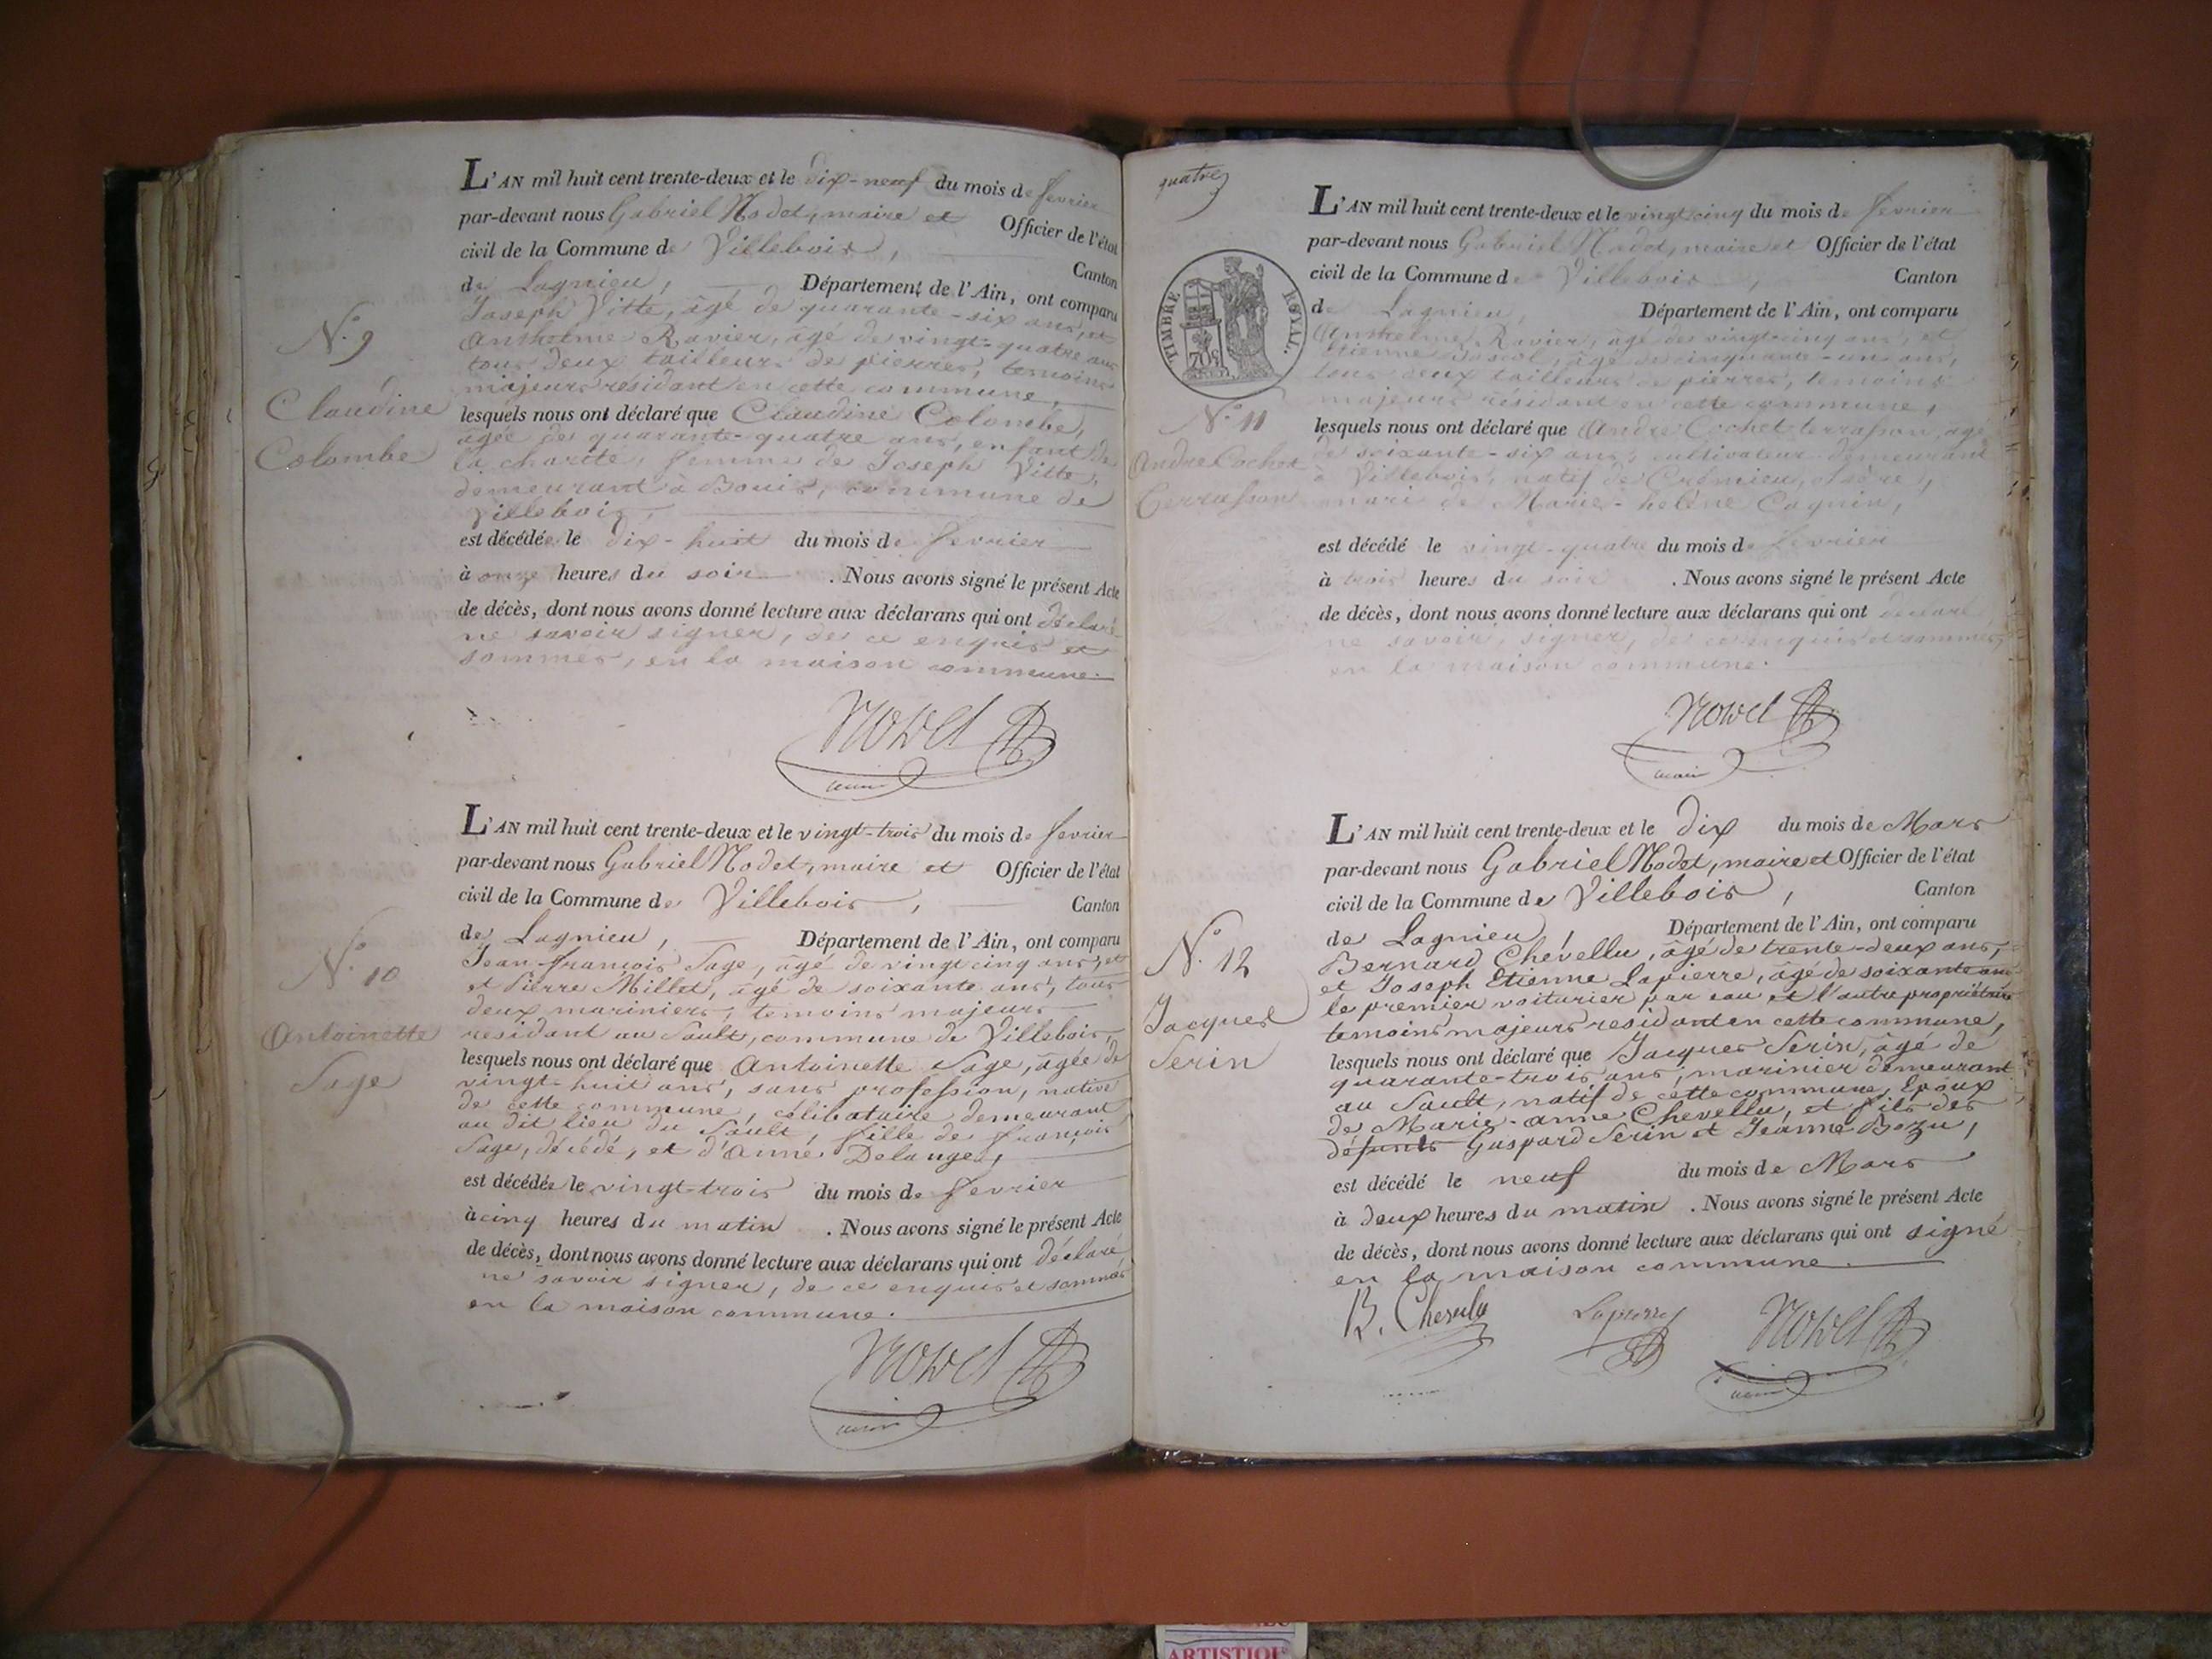 L'AN mil huit cent trente-deux et le dix-neuf du mois de fevrier
par-devant nous Gabriel Nodet, maire et Officier de l'état
civil de la Commune de Villebois, Canton
de Lagnieu, Département de l'Ain, ont comparu
Joseph Vitte, âgé de quarante-six ans, et
Anthelme Ravier, âgé de vingt-quatre ans
tous deux tailleurs de pierres, temoins
majeurs résidant en cette commune,
N.º 9
Claudine
Colombe
lesquels nous ont déclaré que Claudine Colombe,
âgée de quarante-quatre ans, enfant de
la charité, femme de Joseph Vitte,
demeurant à Bouis, commune de
Villebois,
est décédée le dix-huit du mois de fevrier
à onze heures du soir. Nous avons signé le présent Acte
de décès, dont nous avons donné lecture aux déclarans qui ont déclaré
ne savoir signer, de ce enquis et
sommés, en la maison commune.
maire
L'AN mil huit cent trente-deux et le vingt-trois du mois de fevrier
par-devant nous Gabriel Nodet, maire et Officier de l'état
civil de la Commune de Villebois, Canton
de Lagnieu, Département de l'Ain, ont comparu
Jean-françois Sage, âgé de vingt cinq ans, et
et Pierre Millet, âgé de soixante ans, tous
deux mariniers, temoins majeurs
residant au Sault, commune de Villebois,
N.º 10
Antoinette
Sage
lesquels nous ont déclaré que Antoinette Sage, âgée de
vingt-huit ans, sans profession, native
de cette commune, célibataire demeurant
au dit lieu du Sault, fille de françois
Sage, décédé, et d'Anne Delanges,
est décédée le vingt-trois du mois de fevrier
à cinq heures du matin. Nous avons signé le présent Acte
de décès, dont nous avons donné lecture aux déclarans qui ont déclaré
ne savoir signer, de ce enquis et sommés
en la maison commune.
maire
quatre
TIMBRE ROYAL.
L'AN mil huit cent trente-deux et le vingt cinq du mois de fevrier
par-devant nous Gabriel Nodet, maire et Officier de l'état
civil de la Commune de Villebois, Canton
de Lagnieu, Département de l'Ain, ont comparu
Anthelme Ravier, âgé de vingt cinq ans, et
Etienne âgé de cinquante-un ans,
tous deux tailleurs de pierres, temoins
majeurs résidant en cette commune,
N.º 11
André Cochet
Terrasson
lesquels nous ont déclaré que André Cochet terrasson, agé
de soixante-six ans, cultivateur demeurant
à Villebois, natif de Crémieu, Isère,
mari de Marie-helène Cagnin,
est décédé le vingt-quatre du mois de fevrier
à trois heures du soir. Nous avons signé le présent Acte
de décès, dont nous avons donné lecture aux déclarans qui ont declaré
ne savoir signer, de ce enquis et sommés,
en la maison commune.
maire
L'AN mil huit cent trente-deux et le dix du mois de Mars
par-devant nous Gabriel Nodet, maire et Officier de l'état
civil de la Commune de Villebois, Canton
de Lagnieu, Département de l'Ain, ont comparu
Bernard Chevellu, âgé de trente-deux ans,
et Joseph Etienne Lapierre, âgé de soixante ans
le premier voiturier par eau et l'autre propriétaire
temoins majeurs residant en cette commune,
N.º 12
Jacques
Serin
lesquels nous ont déclaré que Jacques Serin, âgé de
quarante-trois ans, marinier demeurant
au Sault, natif de cette commune, Epoux
de Marie-anne Chevellu, et fils des
défunts Gaspard Serin et Jeanne Bozu,
est décédé le neuf du mois de Mars
à deux heures du matin. Nous avons signé le présent Acte
de décès, dont nous avons donné lecture aux déclarans qui ont signé
en la maison commune.
B. Chevelu Lapierre
maire
ARTISTIQ